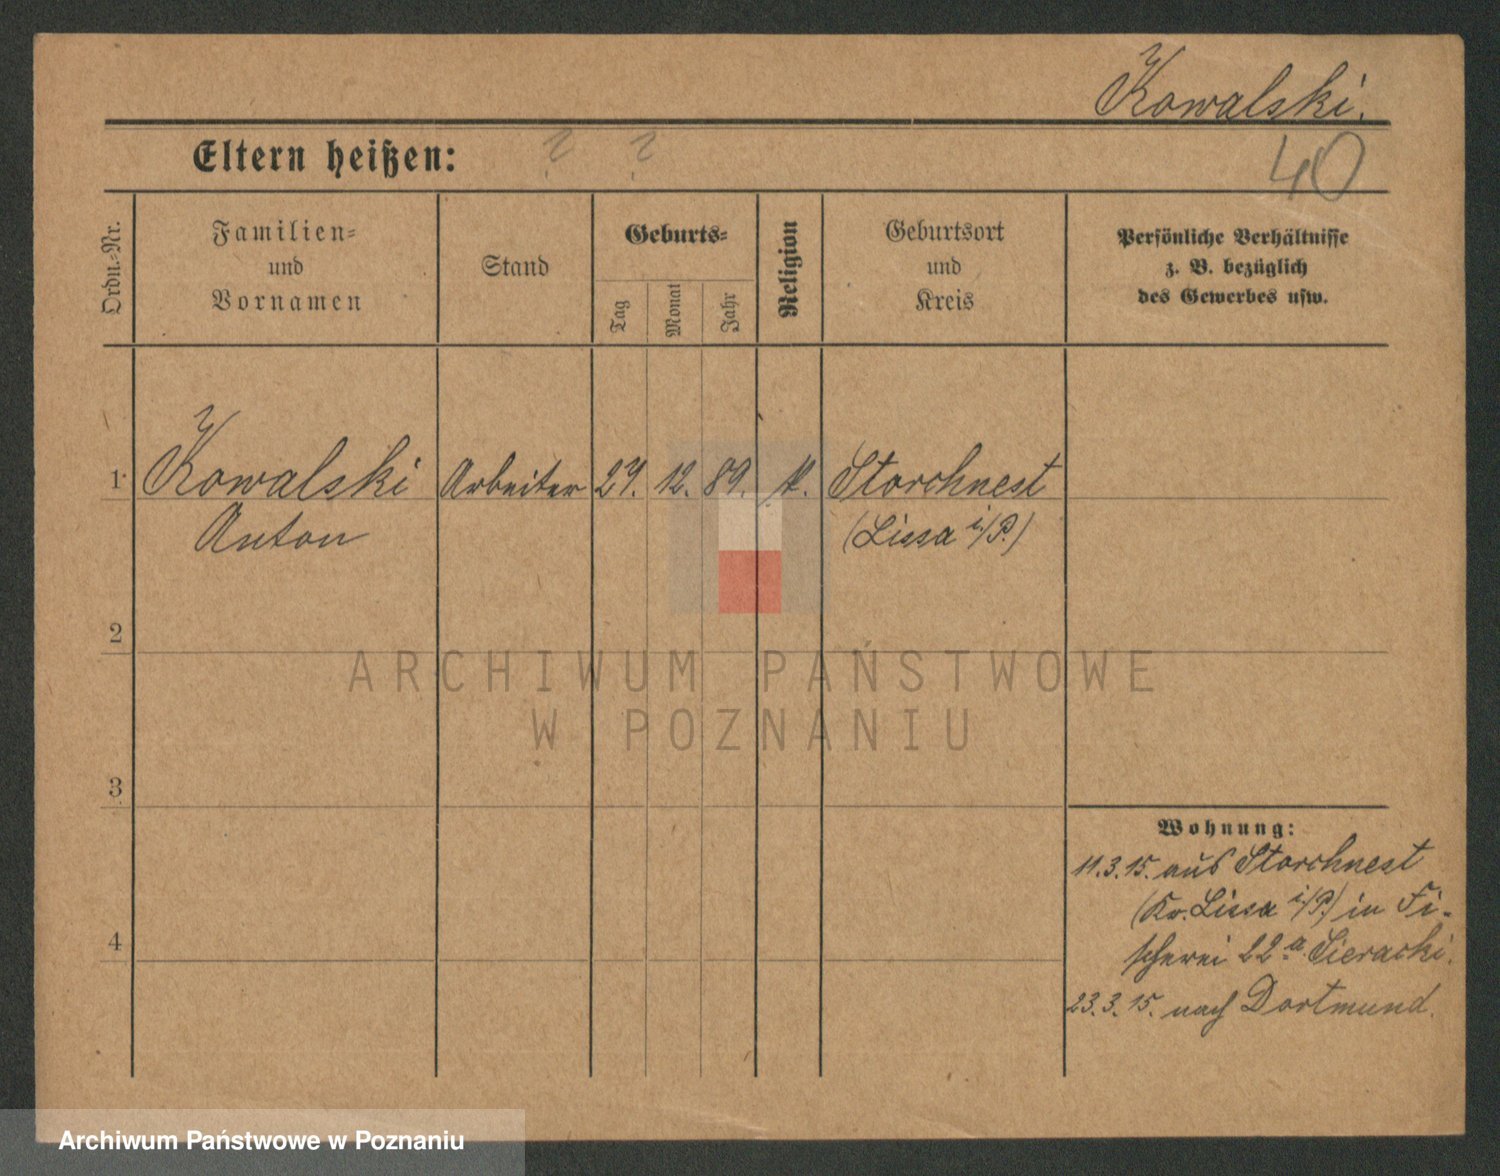 Kowalski.
Eltern heißen: ? ?
40
Ordn.-Nr.
Familien-
und
Vornamen
Stand
Geburts-
Tag
Monat
Jahr
Religion
Geburtsort
und
Kreis
Persönliche Verhältnisse
z. B. bezüglich
des Gewerbes usw.
1 Kowalski Arbeiter 27. 12. 89. k. Storchnest
Anton (Lissa i/P.)
2
3
4
Wohnung:
11.3.15. aus Storchnest
(Kr. Lissa i/P.) in Fi-
scherei 22a. Sieracki.
23.3.15. nach Dortmund.
ARCHIWUM PAŃSTWOWE
W POZNANIU
Archiwum Państwowe w Poznaniu